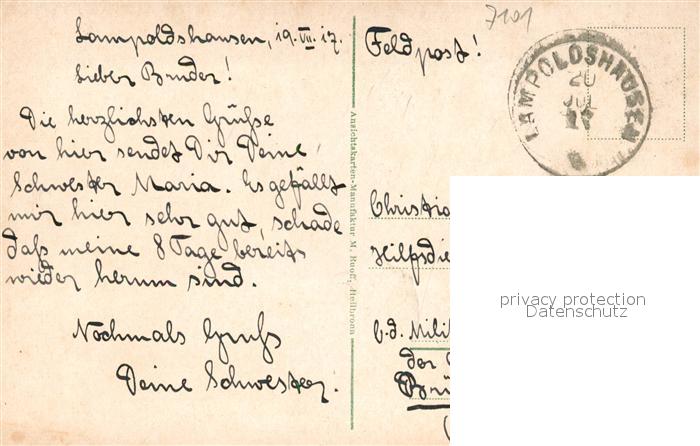 Lampoldshausen, 19. VII. 17.
Lieber Bruder!
Die herzlichsten Grüße
von hier sendet Dir Deine
Schwester Maria. Es gefällt
mir hier sehr gut, schade
daß meine 8 Tage bereits
wieder herum sind.
Nochmals Gruß
Deine Schwester.
Ansichtskarten-Manufaktur M. Ruoff, Heilbronn
7101
Feldpost!
LAMPOLDSHAUSEN
20
JUL
17
Christia
Hilfsdie
b. d. Milit
der
Brü
privacy protection
Datenschutz